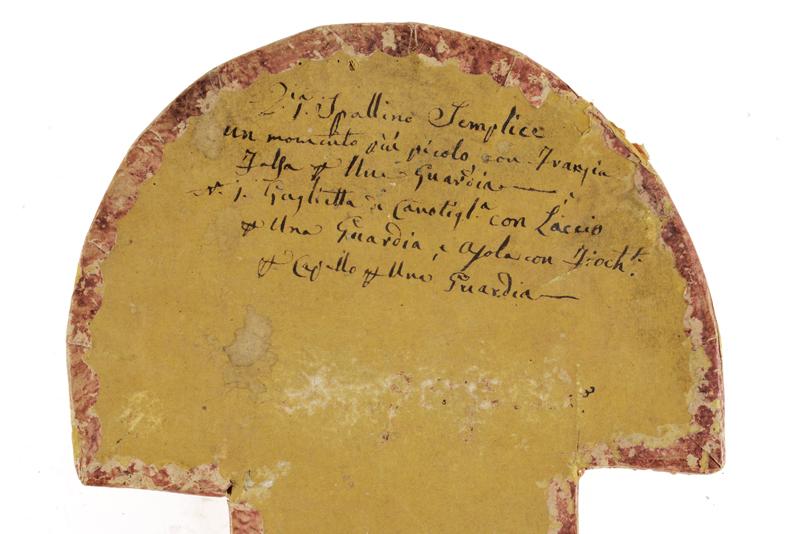 Spallino Semplice
un momento più picolo con Franzia
Falsa p Una Guardia
N. 1. Paglietta di Canotigl.a con Laccio
p Una Guardia, e Asola con Fioch.
p Capello p Una Guardia